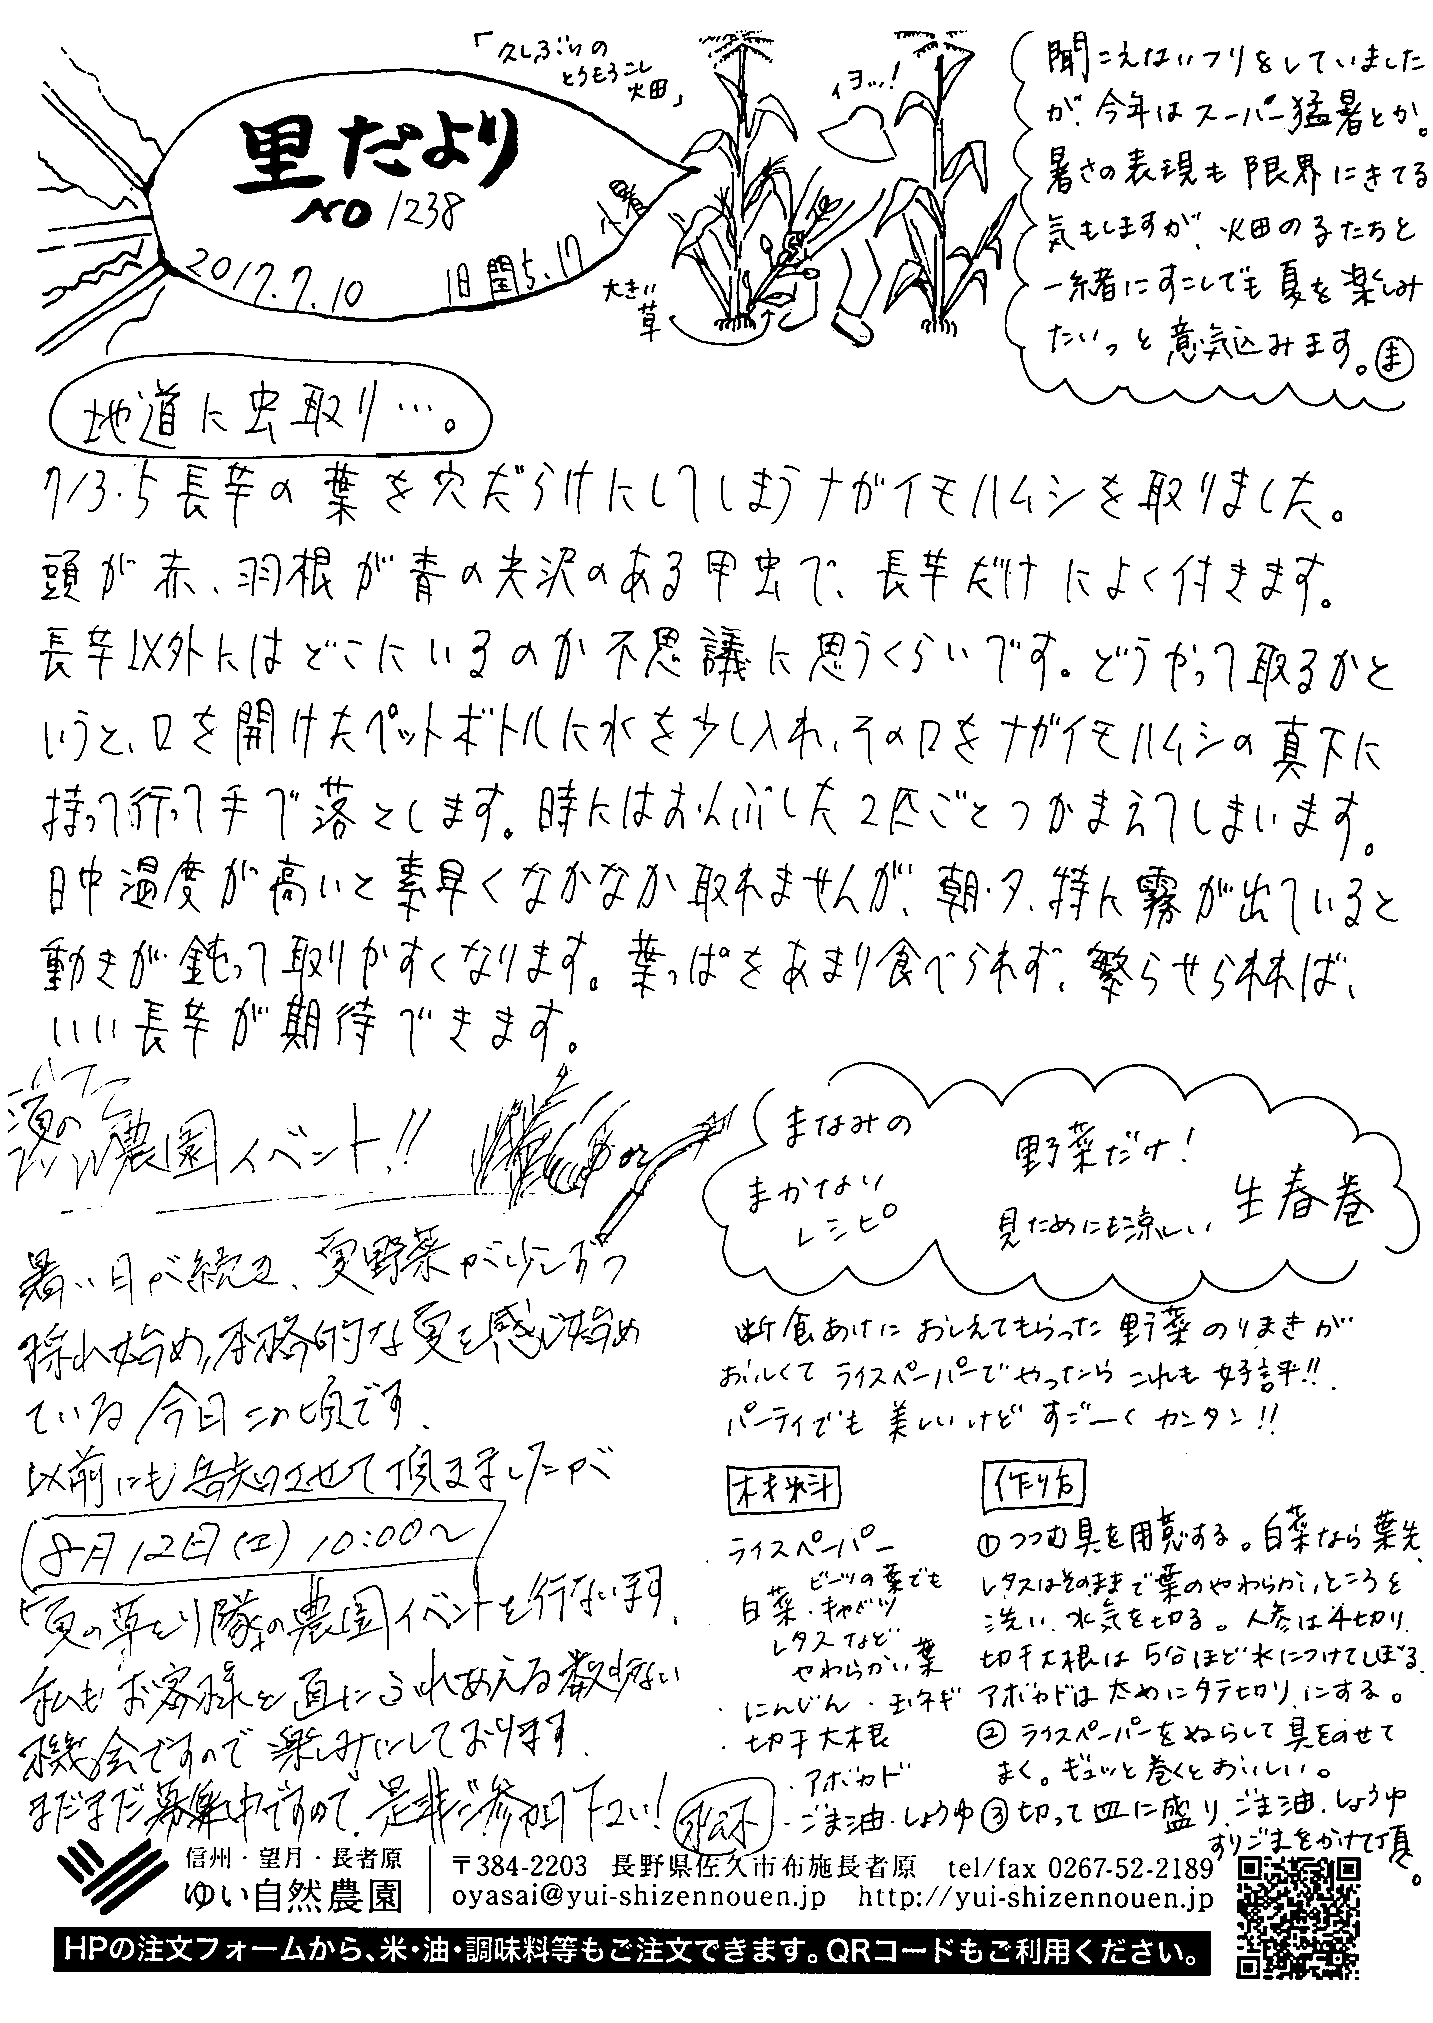 里だより
NO 1238
2017.7.10 旧閏5.17 小暑
「久しぶりの
とうもろこし
畑」
イヨッ…!
大きい
草
聞こえないフリをしていました
が、今年はスーパー猛暑とか。
暑さの表現も限界にきてる
気もしますが、畑の子たちと
一緒にすこしでも夏を楽しみ
たいっと意気込みます。ま
地道に虫取り…。
7/3.5 長芋の葉を穴だらけにしてしまうナガイモハムシを取りました。
頭が赤、羽根が青の光沢のある甲虫で、長芋だけによく付きます。
長芋以外にはどこにいるのか不思議に思うくらいです。どうやって取るかと
いうと、口を開けたペットボトルに水を少し入れ、その口をナガイモハムシの真下に
持って行って手で落とします。時にはおんぶした2匹ごとつかまえてしまいます。
日中温度が高いと素早くなかなか取れませんが、朝・夕、特に霧が出ていると
動きが鈍って取りやすくなります。葉っぱをあまり食べられず、繁らせられれば、
いい長芋が期待できます。
夏の農園イベント!!
暑い日が続き、夏野菜が少しずつ
採れ始め、本格的な夏を感じ始め
ている今日この頃です.
以前にも告知させて頂きましたが
8月12日(土) 10:00〜
「夏の草とり隊」の農園イベントを行ないます.
私もお客様と直にふれあえる数少ない
機会ですので楽しみにしております.
まだまだ募集中ですので、是非ご参加下さい! 松下
まなみの
まかない
レシピ
野菜だけ!
見ためにも涼しい 生春巻
断食あけにおしえてもらった野菜のりまきが
おいしくてライスペーパーでやったらこれも好評!!
パーティでも美しいけどすご〜くカンタン!!
材料
ライスペーパー
ビーツの葉でも
白菜・キャベツ
レタスなど
やわらかい葉
・にんじん・玉ネギ
・切干大根
・アボカド
・ごま油・しょうゆ
作り方
①つつむ具を用意する。白菜なら葉先、
レタスはそのままで葉のやわらかいところを
洗い、水気を切る。人参は千切り、
切干大根は5分ほど水につけてしぼる、
アボカドは太めにタテ切り、にする。
②ライスペーパーをぬらして具をのせて
まく。ギュッと巻くとおいしい。
③切って皿に盛り、ごま油、しょうゆ
すりごまをかけて頂く。
信州・望月・長者原
ゆい自然農園
〒384-2203 長野県佐久市布施長者原 tel/fax 0267-52-2189
oyasai@yui-shizennouen.jp http://yui-shizennouen.jp
HPの注文フォームから、米・油・調味料等もご注文できます。QRコードもご利用ください。